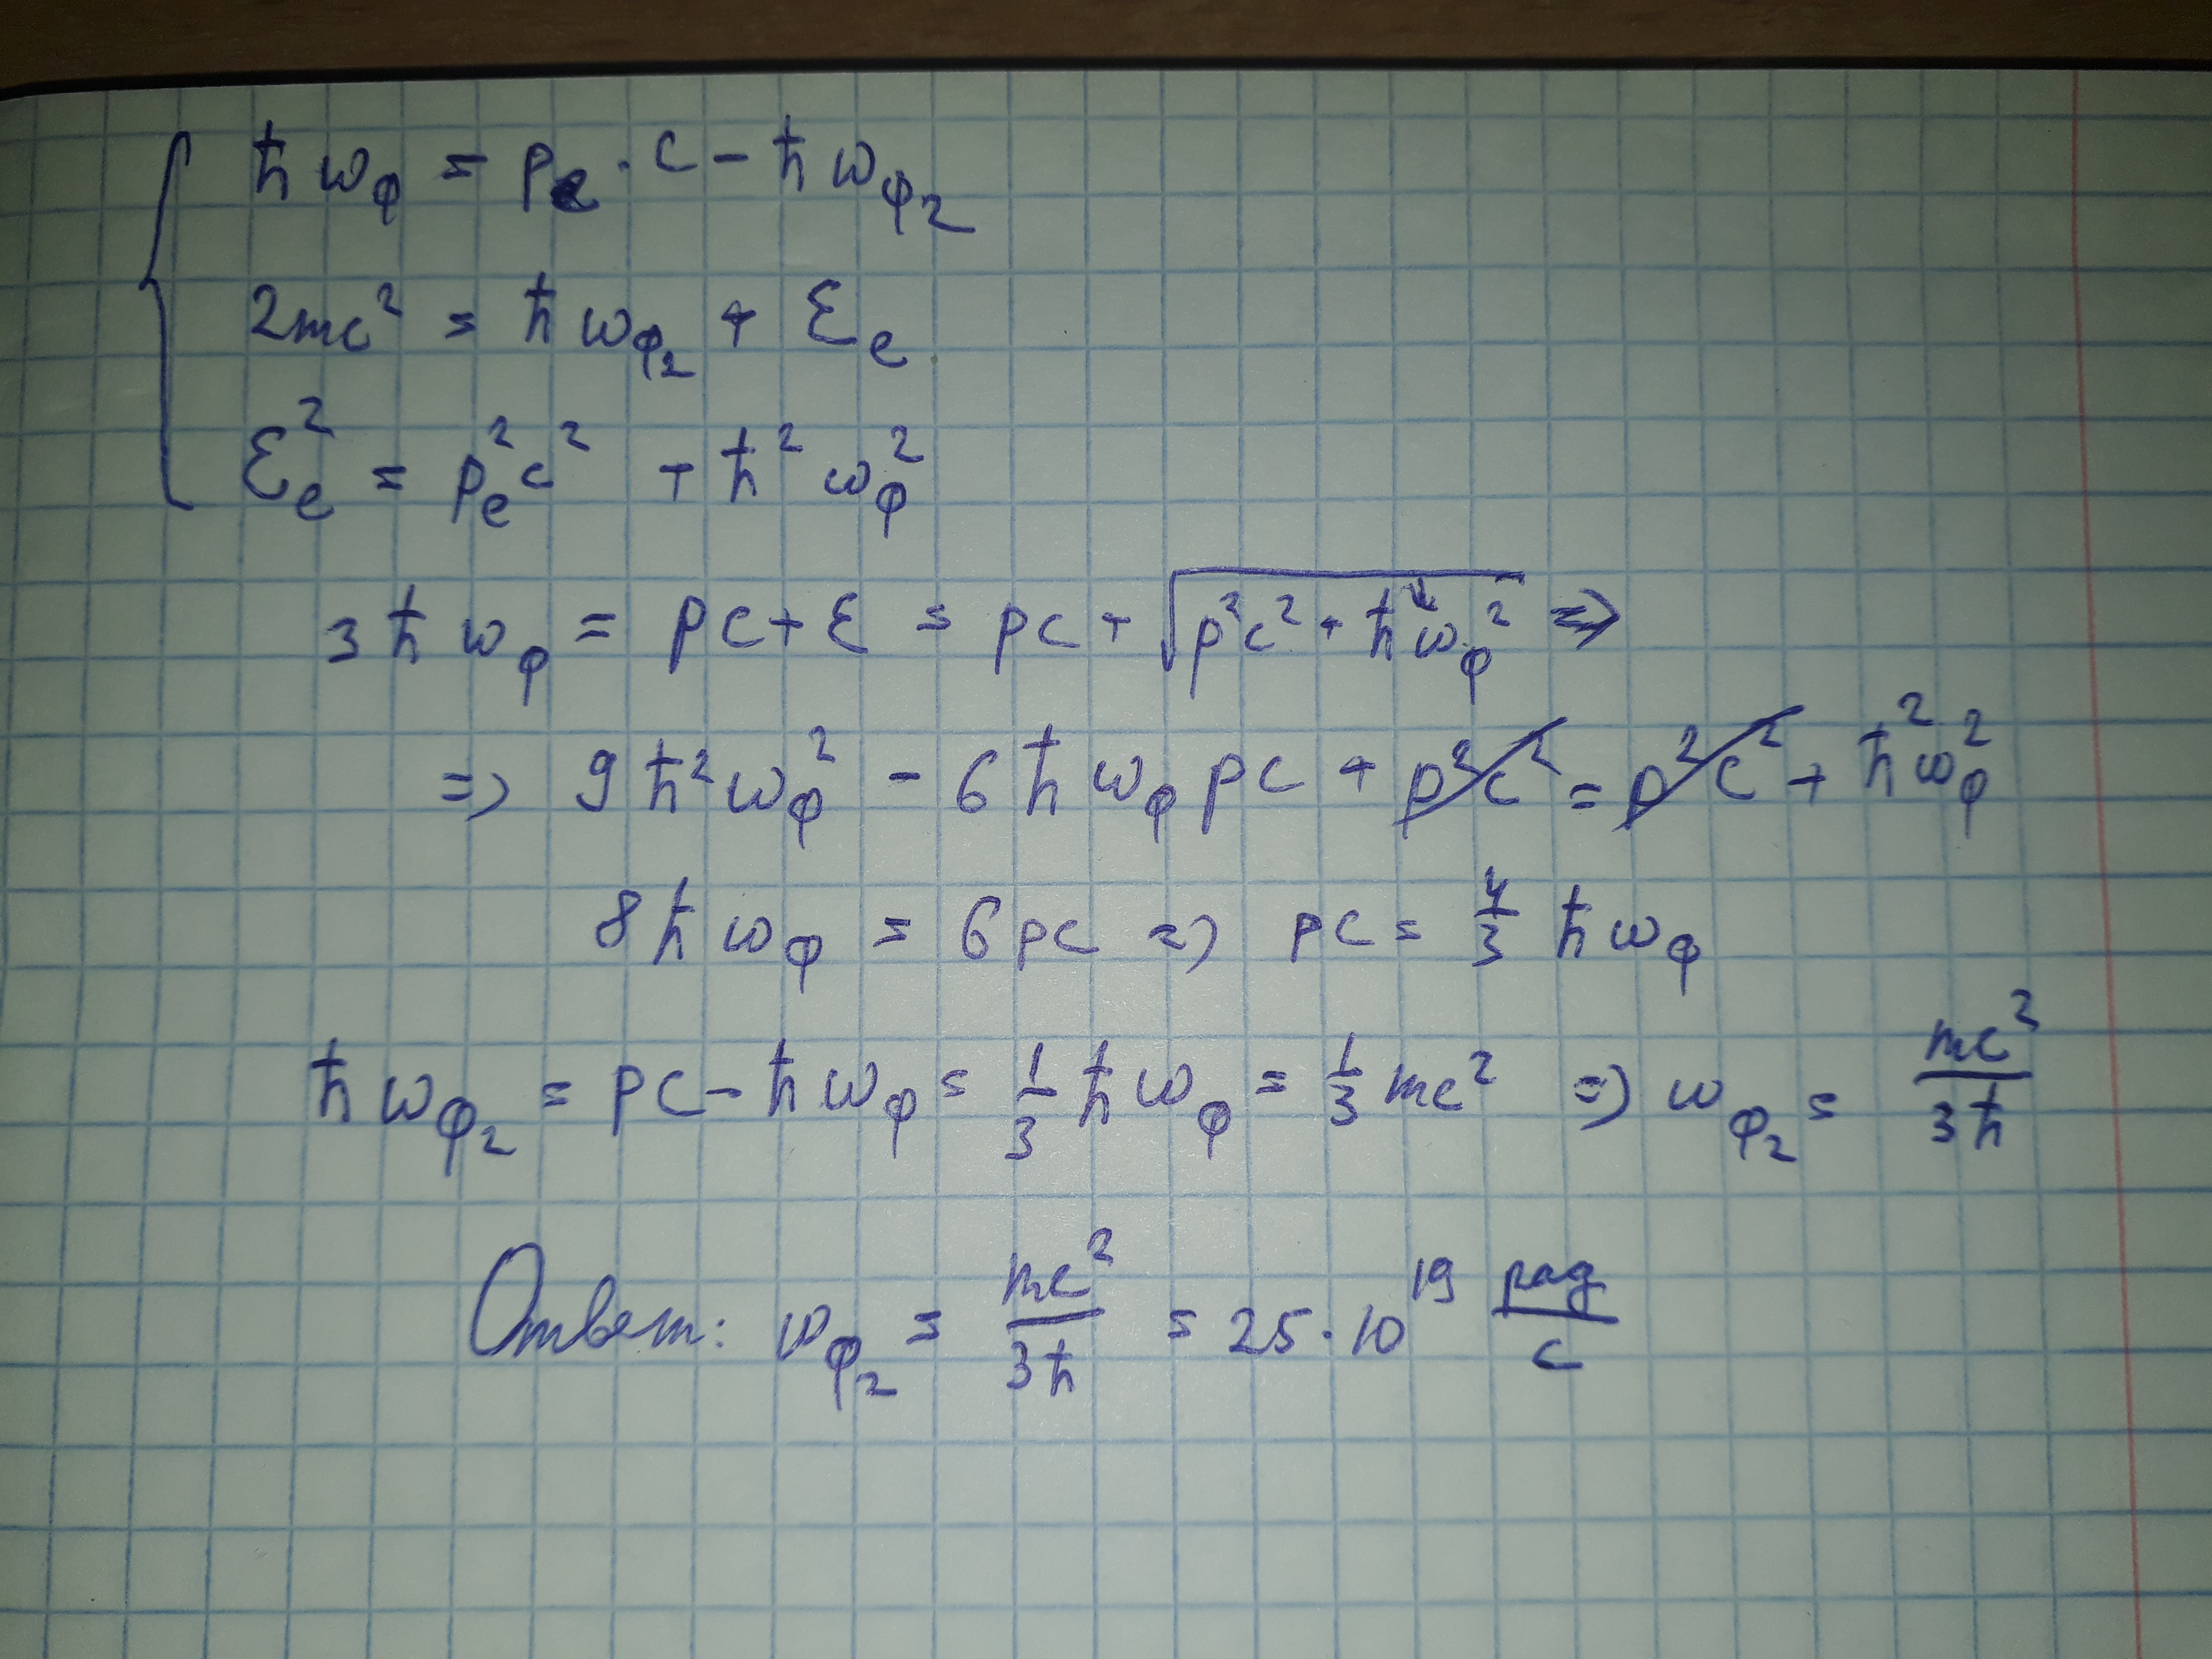 ħω_φ = p_e · c − ħω_φ₂
2mc² = ħω_φ₂ + ℰ_e
ℰ_e² = p_e²c² + ħ²ω_φ²
3ħω_φ = pc + ℰ = pc + √(p²c² + ħ²ω_φ²) ⇒
⇒ 9ħ²ω_φ² − 6ħω_φ pc + p²c² = p²c² + ħ²ω_φ²
8ħω_φ = 6pc ⇒ pc = 4/3 ħω_φ
ħω_φ₂ = pc − ħω_φ = 1/3 ħω_φ = 1/3 mc² ⇒ ω_φ₂ = mc²/3ħ
Ответ: ω_φ₂ = mc²/3ħ = 25·10¹⁹ рад/с